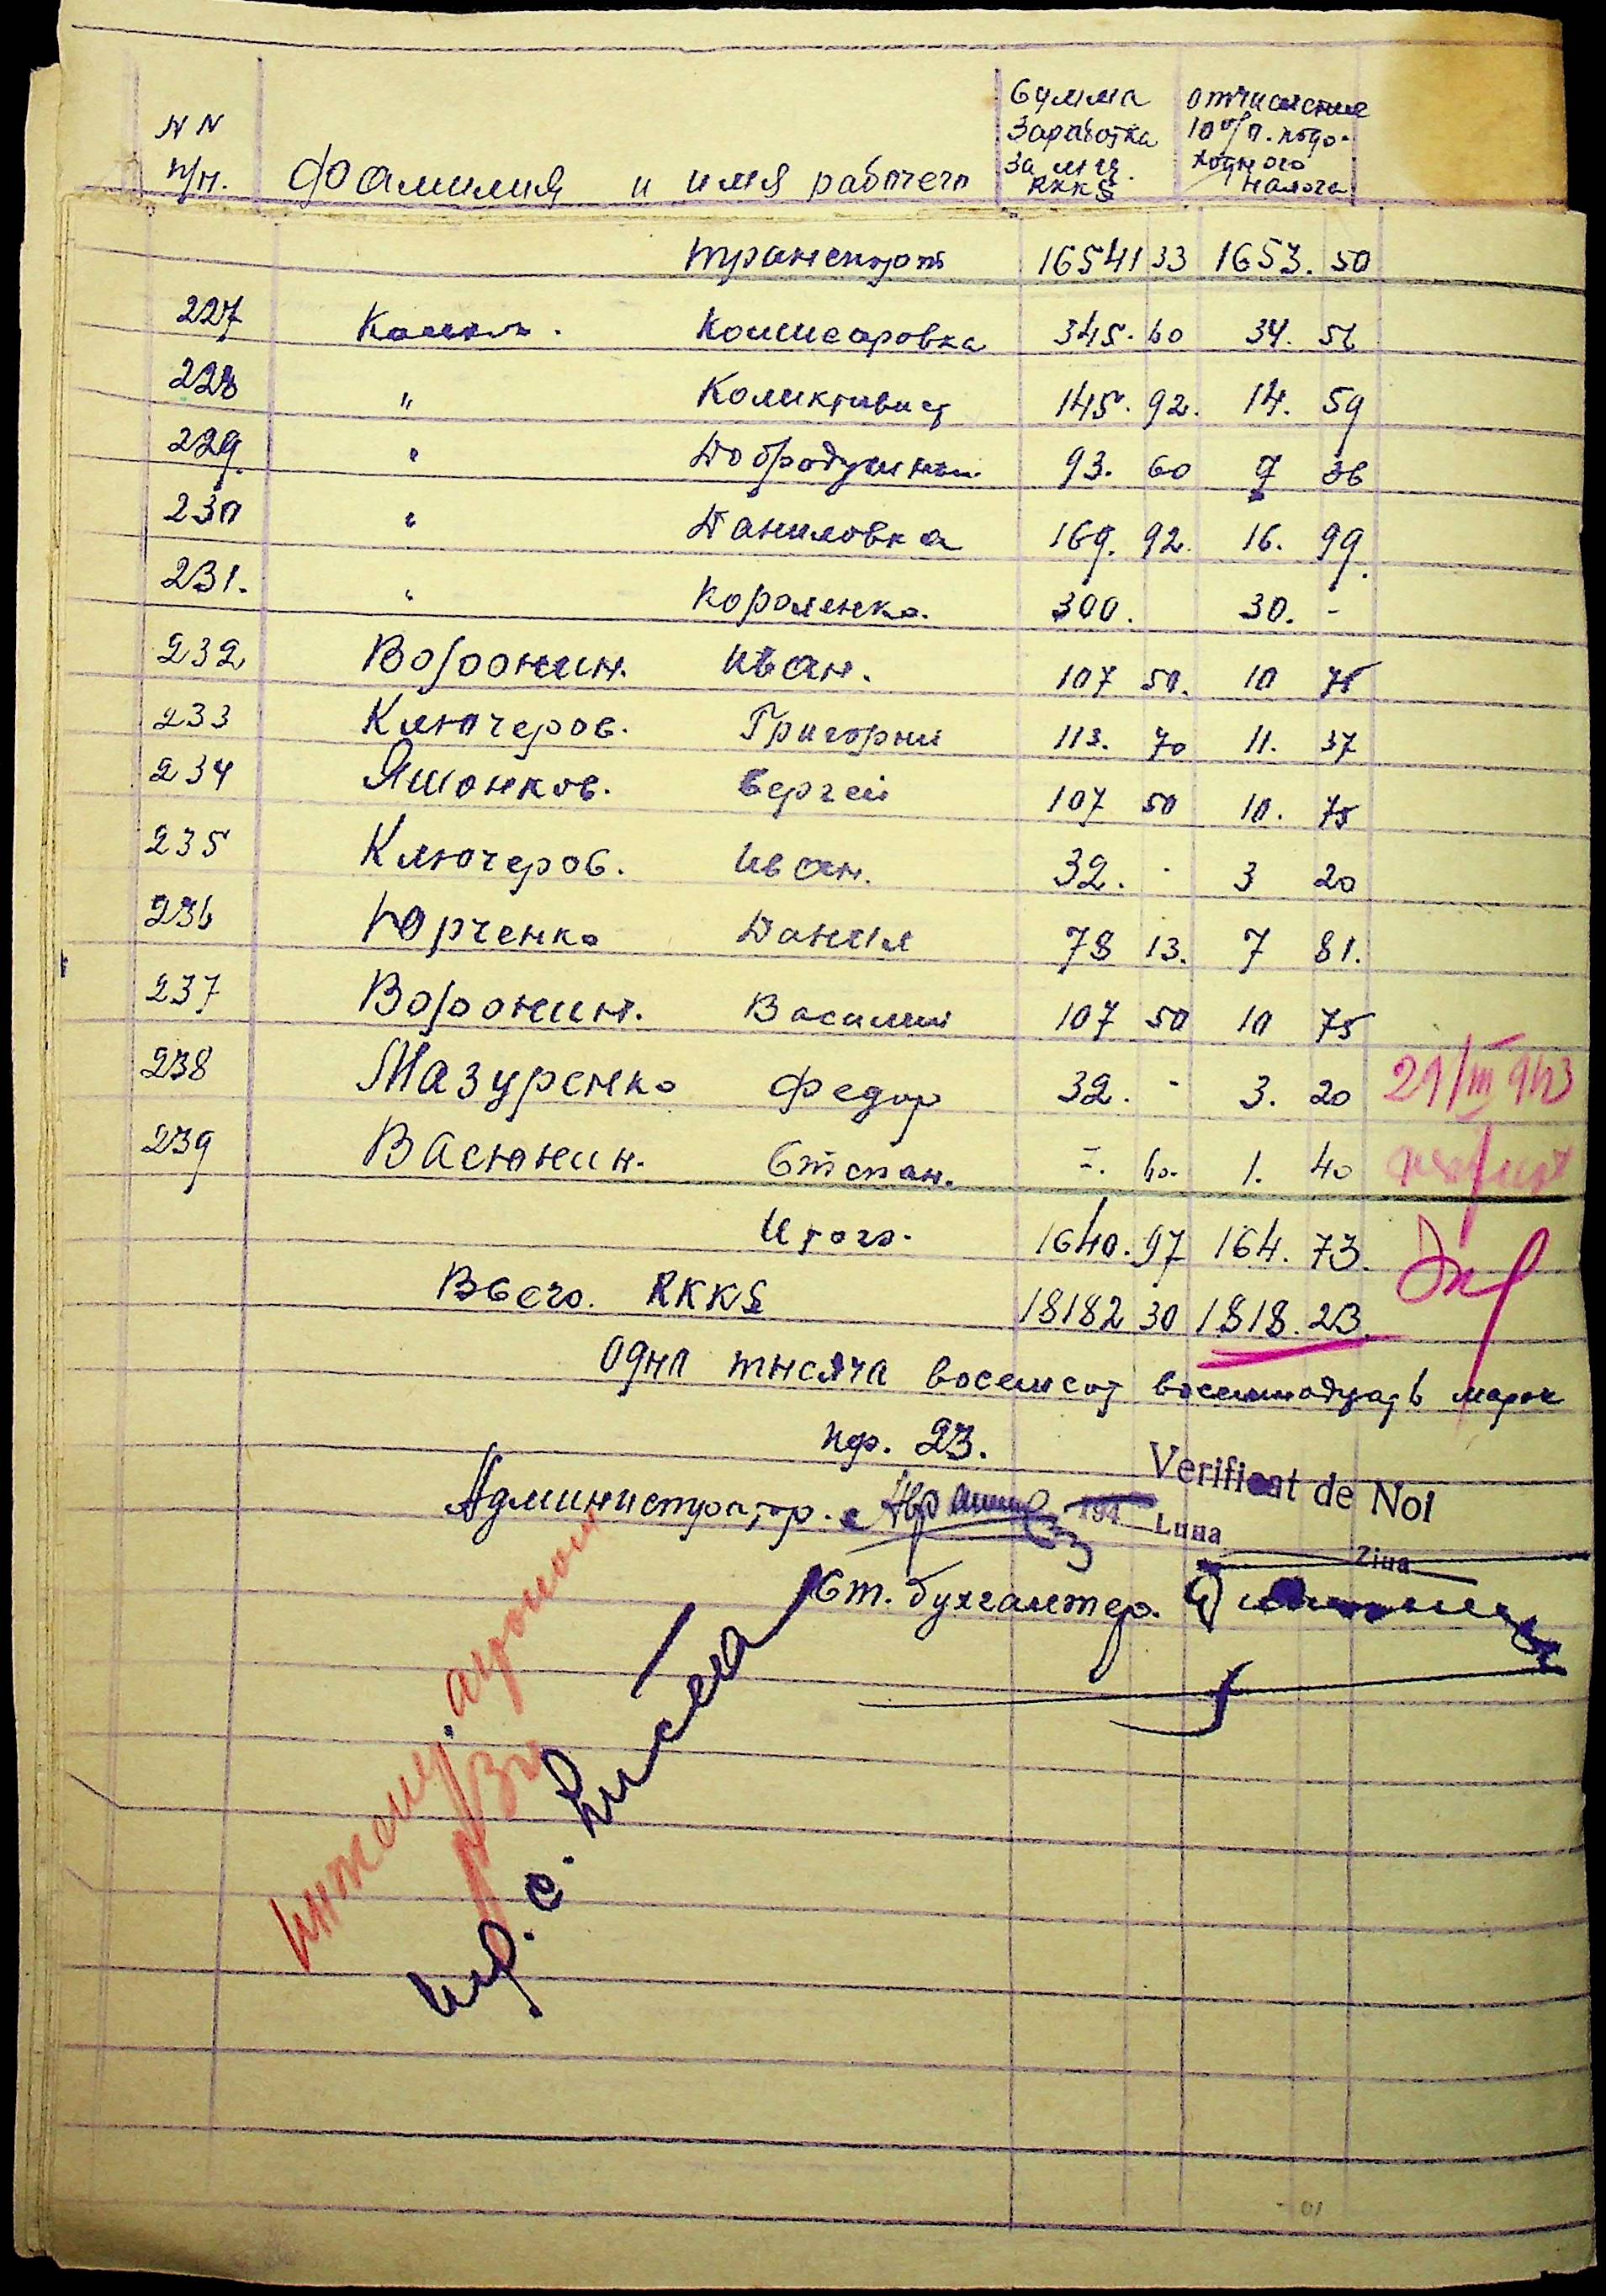 NN п/п. Фамилия и имя рабочего Сумма Заработка за м-ц. RKKS отчисление 10% п. подоходного налога
транспорт 16541 33 1653. 50
227 Комисаровка 345. 60 34. 56
228 " Колективист 145. 92. 14. 59
229. " Добродушный 93. 60 9 36
230 " Даниловка 169. 92. 16. 99.
231. " Короленко. 300. 30. -
232 Воронин. Иван. 107 50. 10 75
233 Ключеров. Григорий 113. 70 11. 37
234 Яшонков. Сергей 107 50 10. 75
235 Ключеров. Иван. 32. - 3 20
236 Юрченко Данил 78 13. 7 81.
237 Воронин. Василий 107 50 10 75
238 Мазуренко Федор 32. - 3. 20
239 Васюнин. Степан. 1. 40
21/III 943
Итого. 1640. 97 164. 73.
Всего. RKKS 18182 30 1818. 23.
Одна тысяча восемсот восемнадцать марок
пф. 23.
Verificat de Noi
Администратор.
194 Luna
Ziua
Ст. бухгалтер.